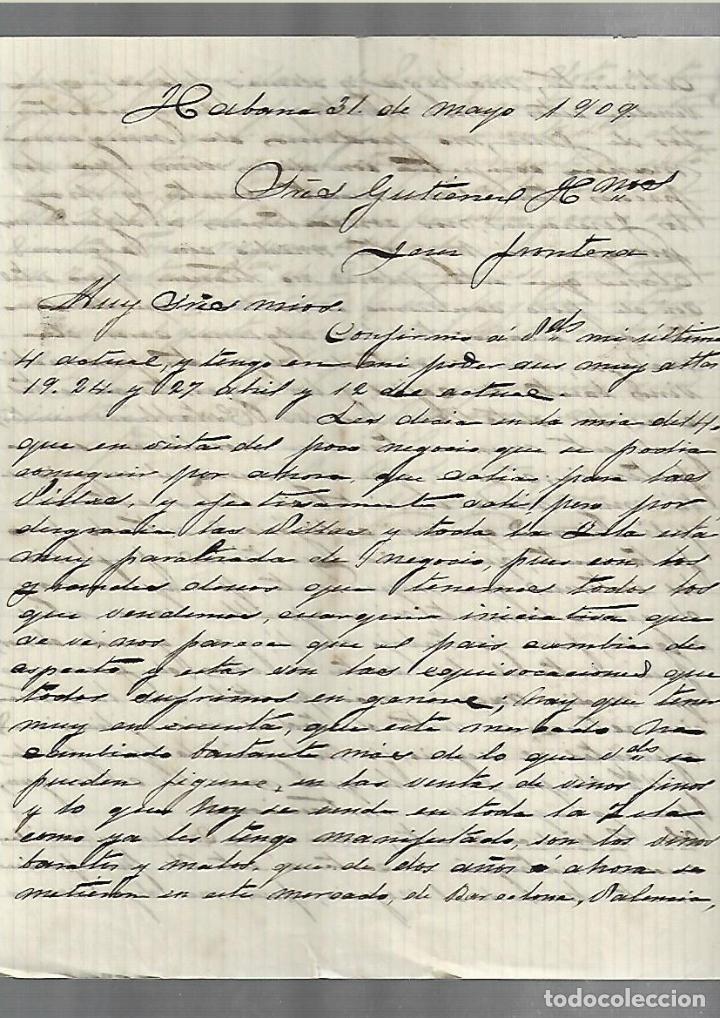 Habana 31. de mayo 1909.
Sñes Gutierres Hnos
Jerez frontera
Muy Sñes mios.
Confirmo á Vds mi última
4 actual, y tengo en mi poder sus muy attas
19. 24. y 27 abril y 12 de actual.
Les decia en la mia del 4.
que en vista del poco negocio que se podia
conseguir por ahora, que salia para las
Villas, y efectivamente sali pero por
desgracia las Villas y toda la Isla esta
muy paralizada de negocio, pues con los
grandes deseos que tenemos todos los
que vendemos, cualquier iniciativa que
se ve, nos parece que el pais cambia de
aspecto y estas son las equivocaciones que
todos sufrimos en general, hay que tener
muy en cuenta, que este mercado ha
cambiado bastante más de lo que Vdes se
pueden figurar, en las ventas de vinos finos
y lo que hoy se vende en toda la Isla
como ya les tengo manifestado, son los vinos
baratos y malos, que de dos años á ahora se
metieron en este mercado, de Barcelona, Valencia,
todocoleccion
todocoleccion.net